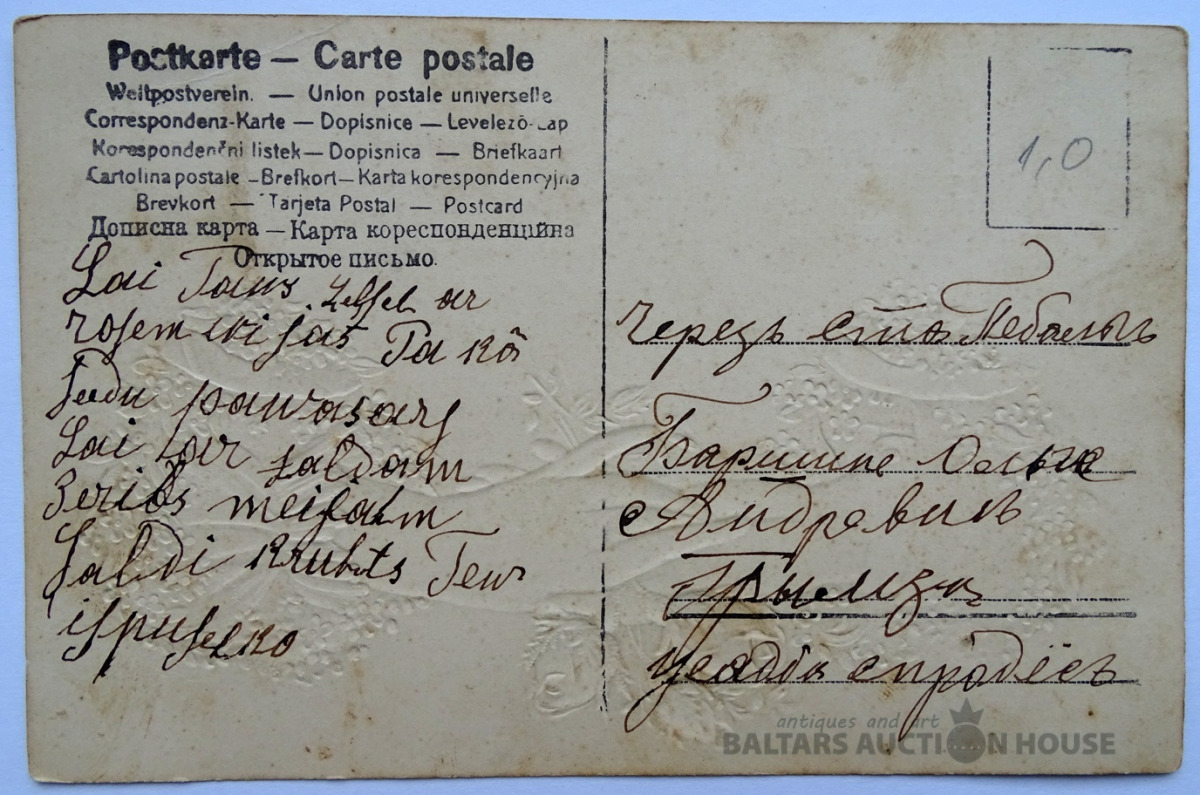 Postkarte — Carte postale
Weltpostverein. — Union postale universelle
Correspondenz-Karte — Dopisnice — Levelező-Lap
Korespondenční listek — Dopisnica — Briefkaart
Cartolina postale — Brefkort — Karta korespondencyjna
Brevkort — Tarjeta Postal — Postcard
Дописна карта — Карта кореспонденційна
Открытое письмо.
Lai Taws ar
rosem wijas Ta kâ
pawasarj
Lai ar saldam
Zeribs meijam
Saldi Tew
1,0
Черезъ ст. Пебалгъ
Барышне Ольге
Андревнъ
Грымза
усадьба спродёсъ
antiques and art
BALTARS AUCTION HOUSE